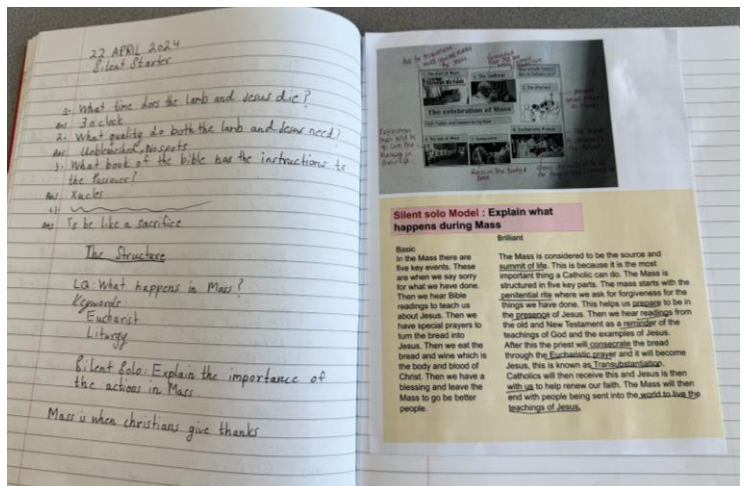 22 APRIL 2024
Silent Starter
1. What time does the lamb and Jesus die?
ans 3 o'clock
2. What quality do both the lamb and Jesus need?
ans Unbleached, No spots
3. What book of the bible has the instructions to
the Passover?
ans
4)
ans To be like a sacrifice
The Structure
LQ: What happens in Mass?
Keywords
Eucharist
Liturgy
Silent Solo: Explain the importance of
the actions in Mass.
Mass is when christians give thanks
The celebration of Mass
Silent solo Model : Explain what
happens during Mass
Basic
In the Mass there are
five key events. These
are when we say sorry
for what we have done.
Then we hear Bible
readings to teach us
about Jesus. Then we
have special prayers to
turn the bread into
Jesus. Then we eat the
bread and wine which is
the body and blood of
Christ. Then we have a
blessing and leave the
Mass to go be better
people.
Brilliant
The Mass is considered to be the source and
summit of life. This is because it is the most
important thing a Catholic can do. The Mass is
structured in five key parts. The mass starts with the
penitential rite where we ask for forgiveness for the
things we have done. This helps us prepare to be in
the presence of Jesus. Then we hear readings from
the old and New Testament as a reminder of the
teachings of God and the examples of Jesus.
After this the priest will consecrate the bread
through the Eucharistic prayer and it will become
Jesus, this is known as Transubstantiation.
Catholics will then receive this and Jesus is then
with us to help renew our faith. The Mass will then
end with people being sent into the world to live the
teachings of Jesus.